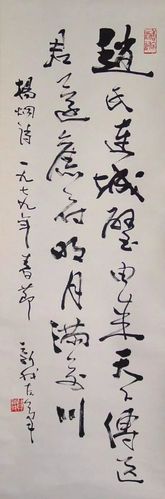 趙氏連城璧由来天下傳送
君還舊府明月滿前川
楊炯詩一九七九年春節